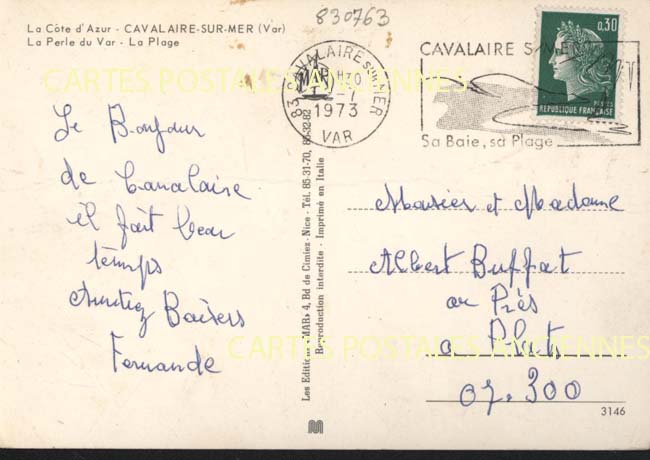 La Côte d'Azur - CAVALAIRE-SUR-MER (Var)
La Perle du Var - La Plage
830763
83 CAVALAIRE SUR MER
1973
VAR
CAVALAIRE S/MER
Sa Baie, sa Plage
0,30
POSTES
REPUBLIQUE FRANÇAISE
CARTES POSTALES ANCIENNES
Le Bonjour
de Cavalaire
il fait beau
temps
Baisers
Fernande
Les Editions «MAR» 4, Bd de Cimiez - Nice - Tél. 85-31-70, 85-32-82
Reproduction interdite - Imprimé en Italie
Mosier et Madame
Albert Buffat
au Près
a
07.300
CARTES POSTALES ANCIENNES
3146